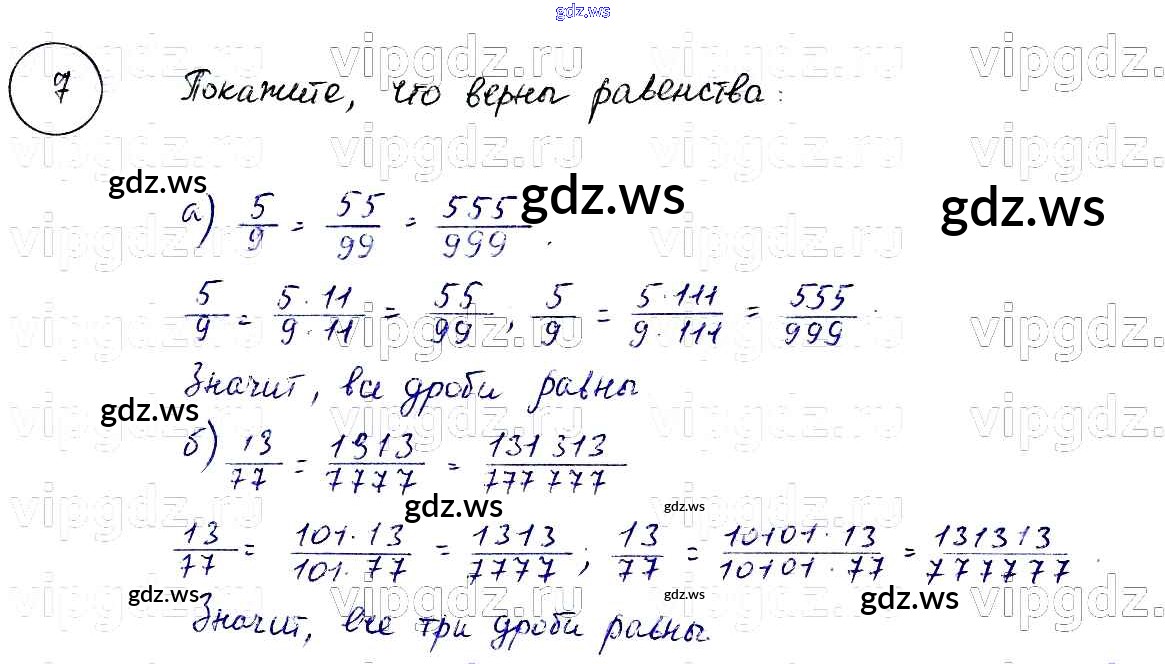 gdz.ws
7 Покажите, что верны равенства:
gdz.ws
а) 5/9 = 55/99 = 555/999.
gdz.ws
gdz.ws
5/9 = 5·11/9·11 = 55/99, 5/9 = 5·111/9·111 = 555/999.
Значит, все дроби равны
gdz.ws
б) 13/77 = 1313/7777 = 131 313/777 777
gdz.ws
gdz.ws
13/77 = 101·13/101·77 = 1313/7777; 13/77 = 10101·13/10101·77 = 131313/777777.
gdz.ws
gdz.ws
gdz.ws
Значит, все три дроби равны.
vipgdz.ru vipgdz.ru vipgdz.ru vipgdz.